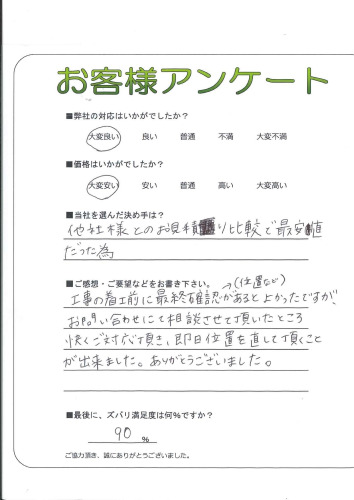 お客様アンケート
■弊社の対応はいかがでしたか？
大変良い 良い 普通 不満 大変不満
■価格はいかがでしたか？
大変安い 安い 普通 高い 大変高い
■当社を選んだ決め手は？
他社様とのお見積り比較で最安値
だった為
■ご感想・ご要望などをお書き下さい。
→(位置など)
工事の着工前に最終確認があると良かったですが、
お問い合わせにて相談させて頂いたところ
快くご対応頂き、即日位置を直して頂くこと
が出来ました。ありがとうございました。
■最後に、ズバリ満足度は何%ですか？
90 %
ご協力頂き、誠にありがとうございました。